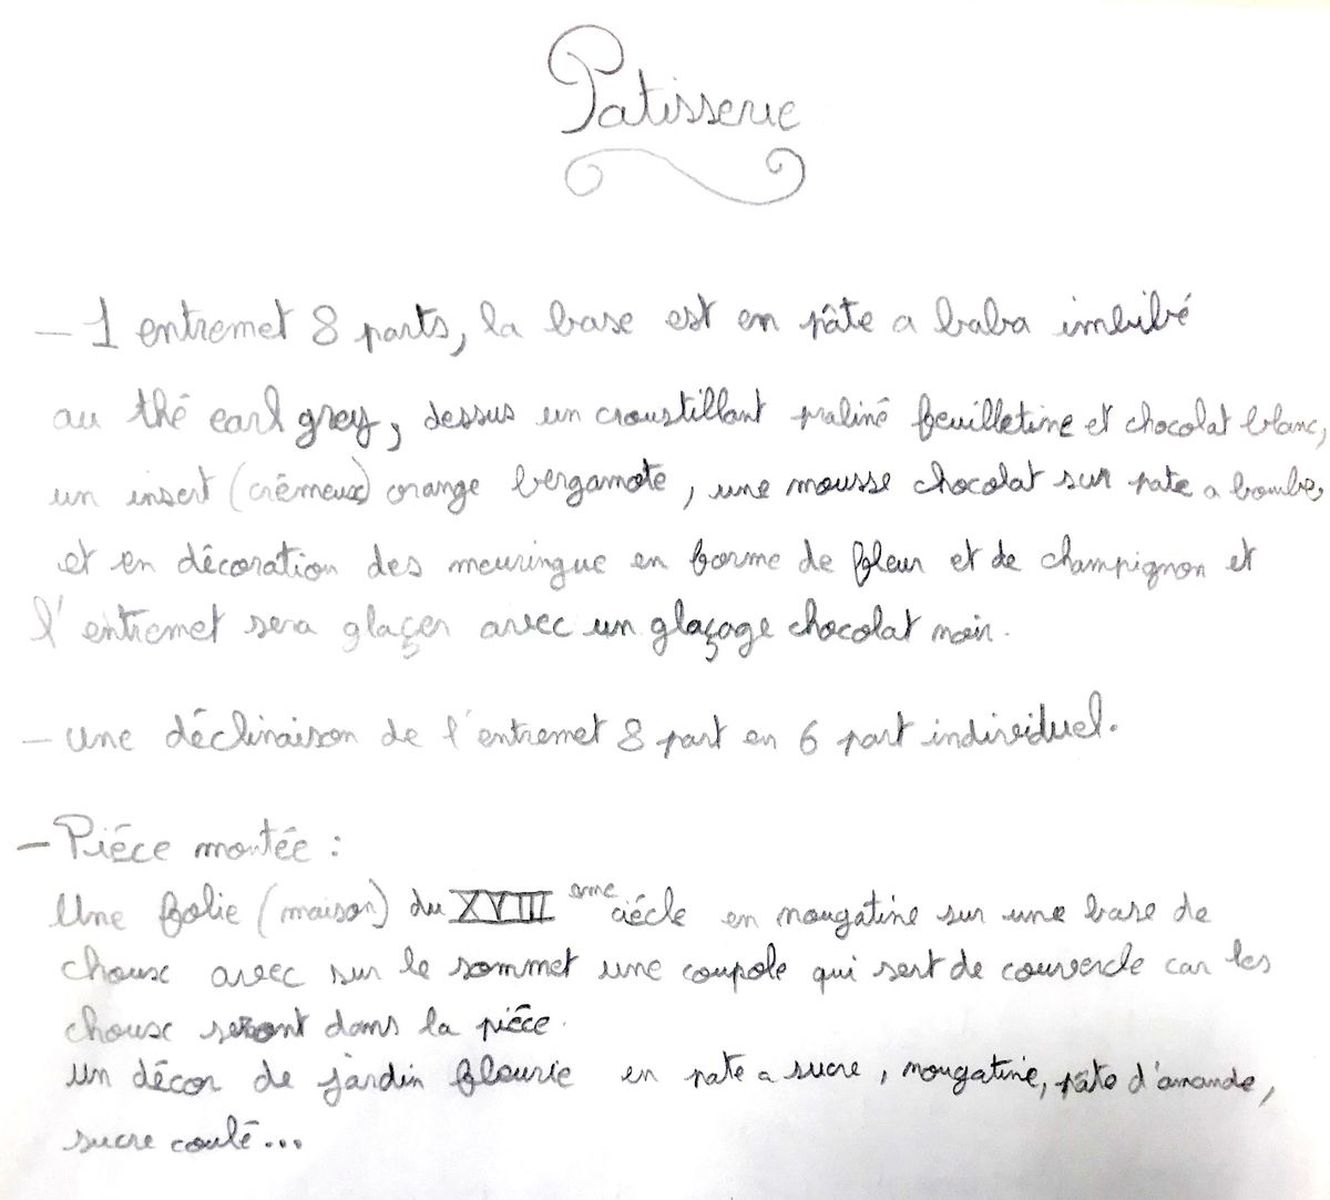 Patisserie
- 1 entremet 8 parts, la base est en pâte a baba imbibé
au thé earl grey, dessus un croustillant praliné feuilletine et chocolat blanc,
un insert (crémeux) orange bergamote, une mousse chocolat sur pate a bombe,
et en décoration des meuringue en forme de fleur et de champignon et
l'entremet sera glaçer avec un glaçage chocolat noir.
- une déclinaison de l'entremet 8 part en 6 part individuel.
- Piéce montée :
Une folie (maison) du XVIII eme ciécle en nougatine sur une base de
choux avec sur le sommet une coupole qui sert de couvercle car les
choux seront dans la piéce.
Un décor de jardin fleurie en pate a sucre, nougatine, pâte d'amande,
sucre coulé...